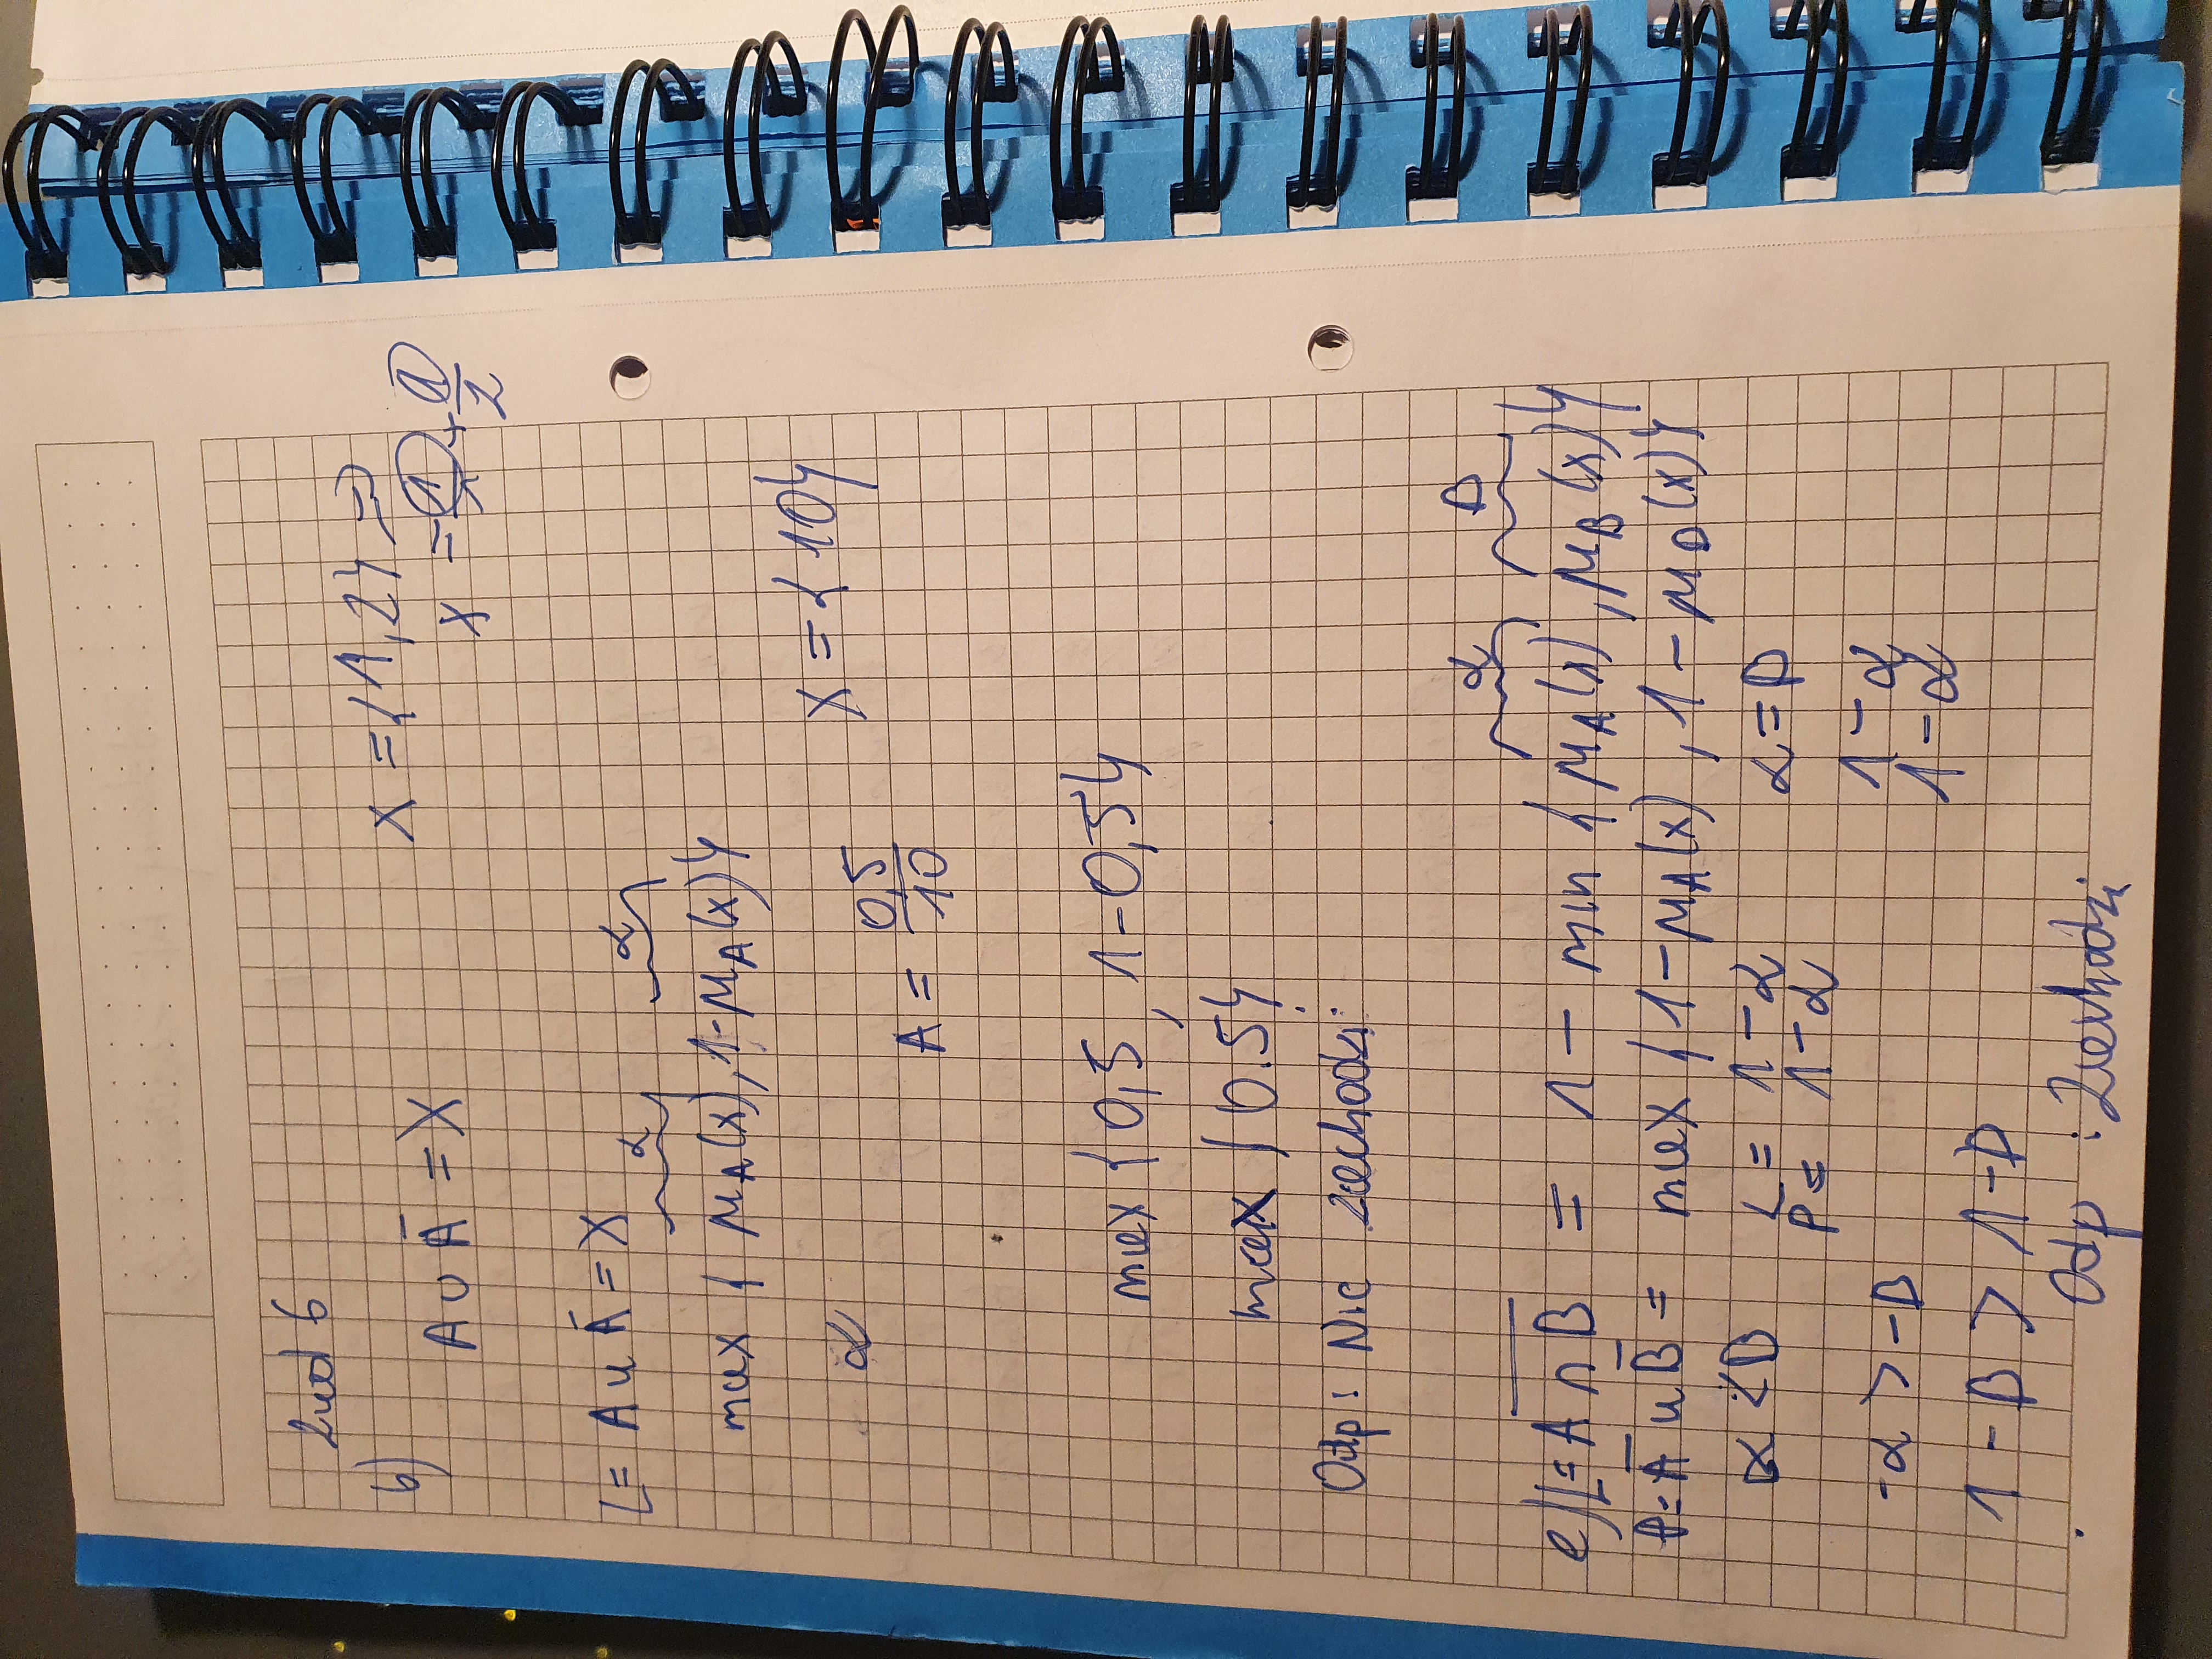 Zad 6
b)
A ∪ Ā = X
X = {1,2} =>
X = 1/1 + 1/2
L = A ∪ Ā = X
α α
max { μA(x), 1-μA(x)}
X = {10}
α
A = 0,5/10
max {0,5, 1-0,5}
max {0.5}
Odp: Nie zachodzi
α B
e) L = A ∩ B = 1 - min {μA(x), μB(x)}
P = Ā ∪ B̄ = max {1-μA(x), 1-μB(x)}
α < B L = 1-α α = B
P = 1-α
1-α
-α > -B
1-α
1-B > 1-B
Odp: Zachodzi